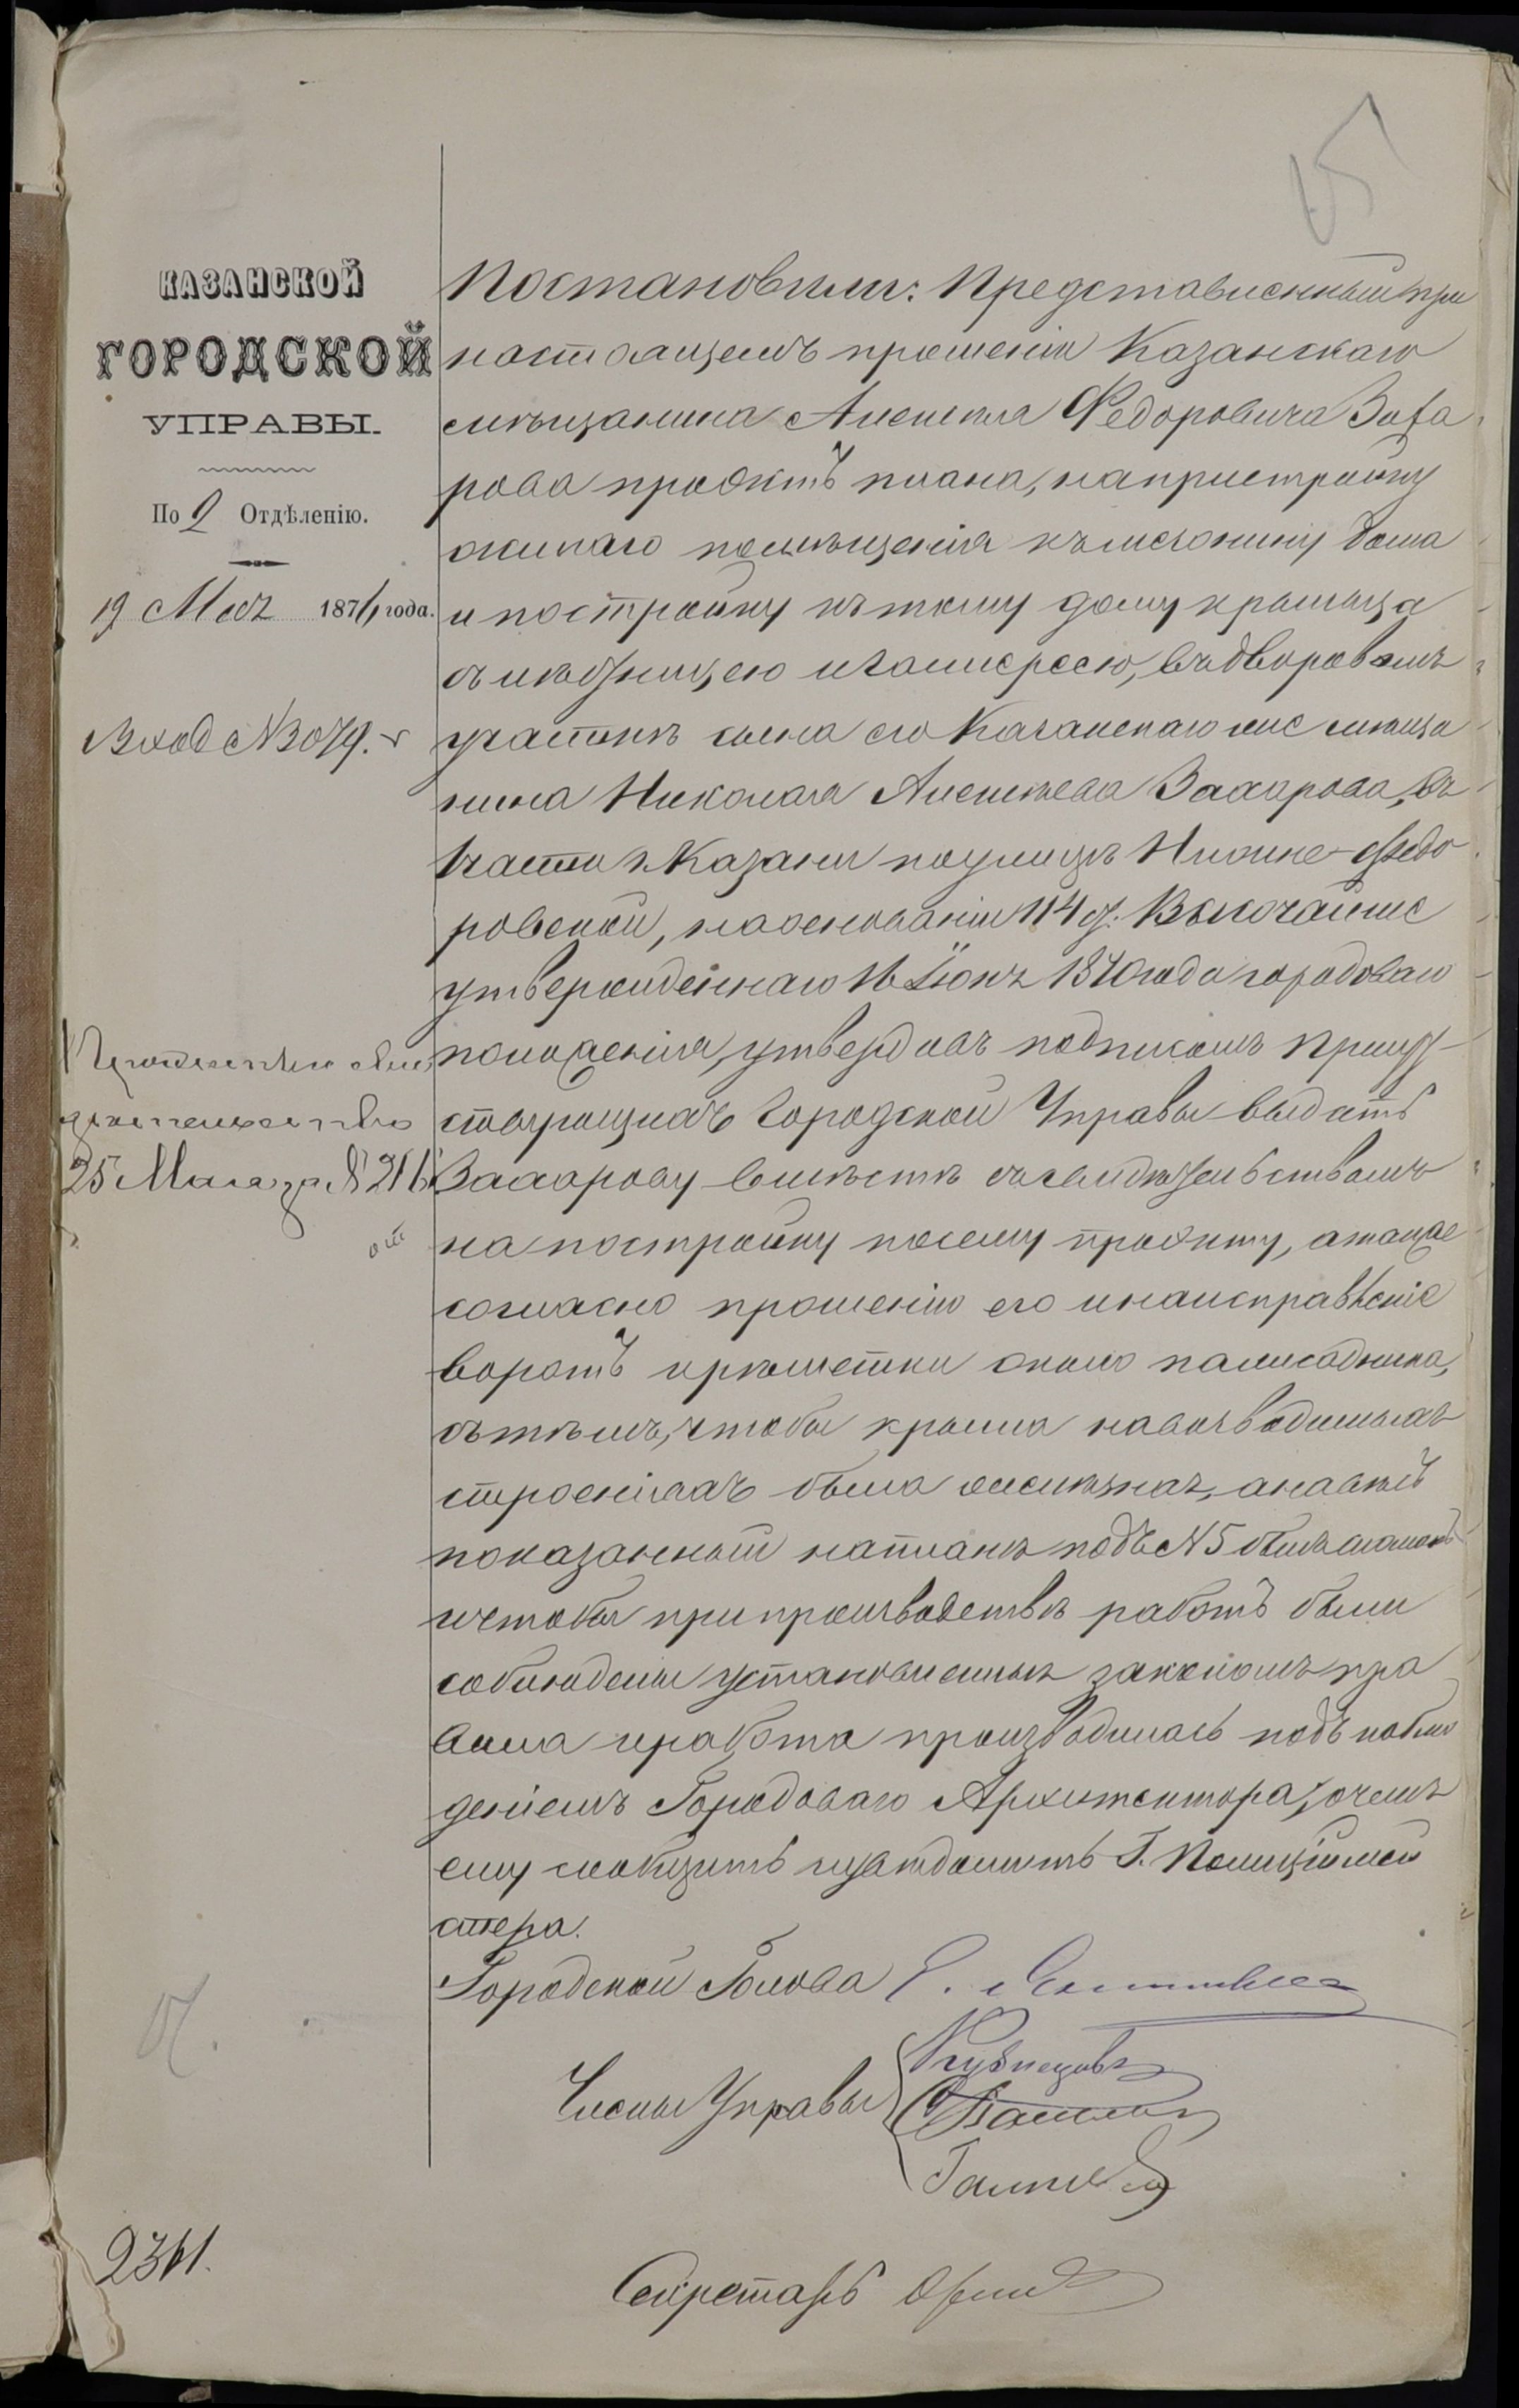 5
КАЗАНСКОЙ
ГОРОДСКОЙ
УПРАВЫ.
По 2 Отдѣленію.
19 Мая 1871 года.
Вход № 3079.
свидѣтельство
25 Мая за № 216
Постановили: Представленный при
настоящемъ прошеніи Казанскаго
мѣщанина Алексѣя Федоровича Заха
рова проэктъ плана, на пристройку
жилаго помѣщенія къ жилому дома
и постройку къ тому дому крыльца
съ лѣстницею и галлереею, въ дворовомъ
участкѣ сына его Казанскаго же мѣща
нина Николая Алексѣева Захарова, въ
1 части г. Казани по улицѣ Нижне-Ѳедо
ровской, на основаніи 114 ст. Высочайше
утвержденнаго 16 Іюня 1870 года городоваго
положенія, утвердивъ подписомъ присут
ствующихъ Городской Управы выдать
Захарову вмѣстѣ съ свидѣтельствомъ
на постройку по сему проэкту, а также
согласно прошенію его и на исправленіе
воротъ и рѣшетки около палисадника,
съ тѣмъ, чтобы крыша на возводимыхъ
строеніяхъ была желѣзная, а навѣсъ
показанный на планѣ подъ № 5 былъ сломанъ
и чтобы при производствѣ работъ были
соблюдены установленныя закономъ пра
вила и работа производилась подъ наблю
деніемъ Городоваго Архитектора, о чемъ
ему сообщить и увѣдомить Г. Полицiймей
стера.
Городской Голова
Члены Управы
Кузнецовъ
Секретарь
2311.